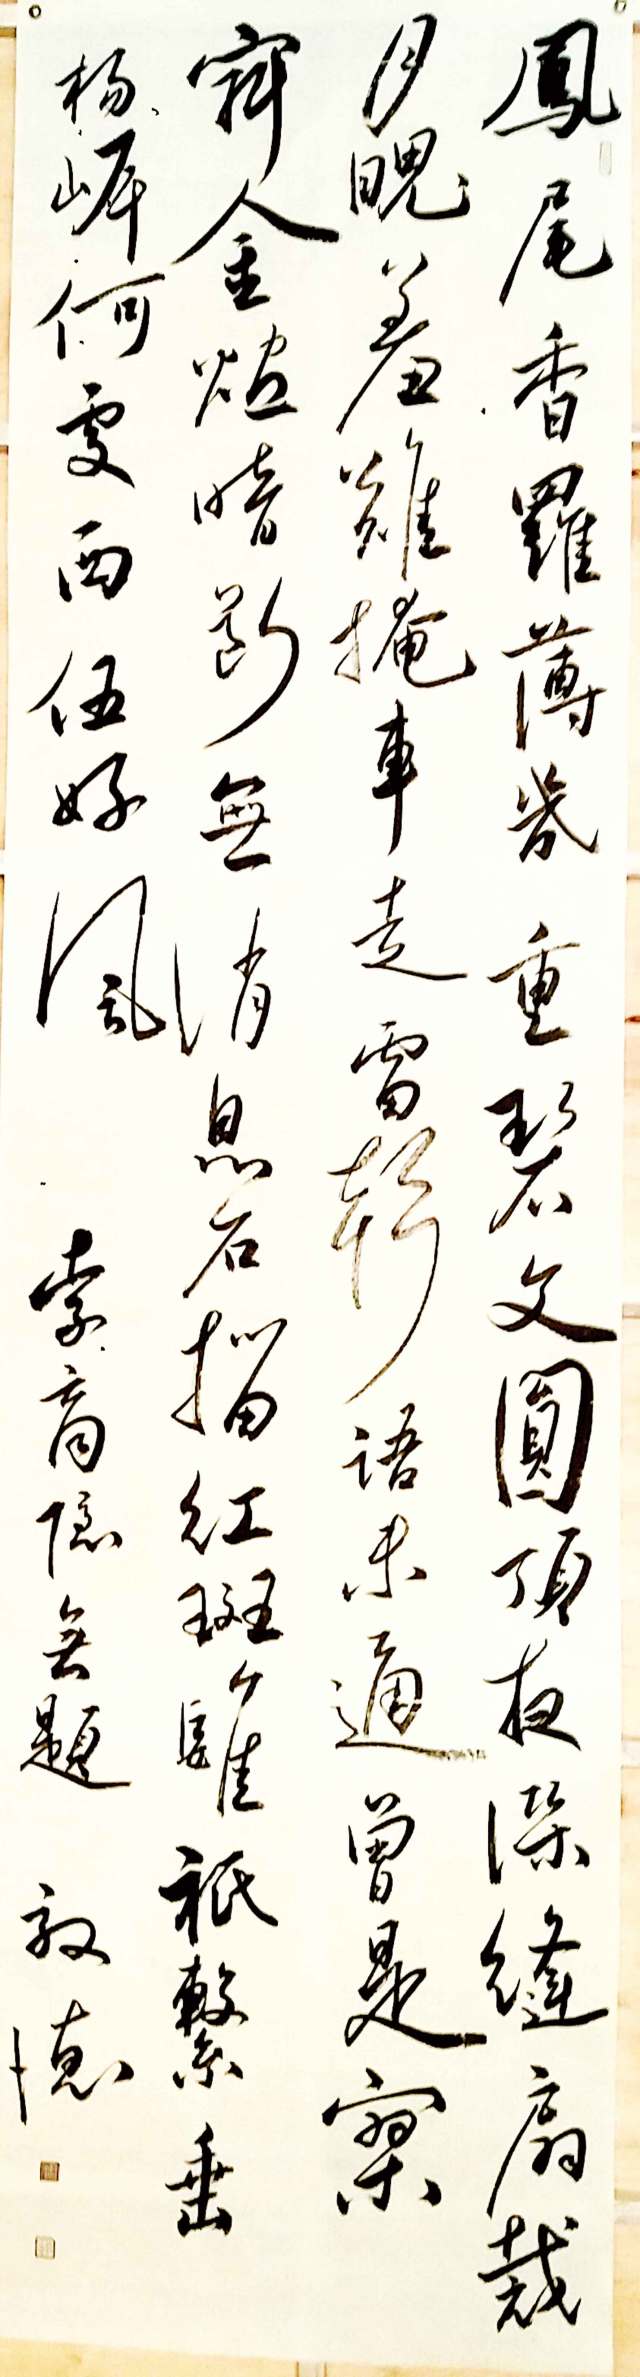 鳳尾香羅薄幾重碧文圓頂夜深縫扇裁
月魄羞難掩車走雷聲語未通曾是寂
寥金燼暗斷無消息石榴紅斑騅祇繫垂
楊岸何處西任好風 李商隱無題